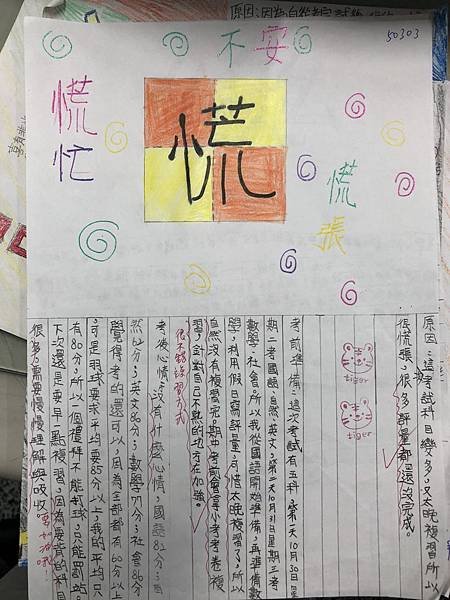 原因:因為自然考完試
50303
不安
慌忙
慌
慌張
原因:這次考試科目變多,又太晚複習所以
很慌張,很多評量都還沒完成。
tiger
tiger
考前準備:這次考試有五科,第一天10月30日星
期二考國語、自然、英文,第二天10月31日星期三考
數學、社會,所以我從國語開始準備,再準備數
學,利用假日寫評量,可惜太晚複習了,所以
自然沒有複習完。期中考前會拿小考考卷複
習,針對自己不熟的地方在加強。
很不錯的複習方式
考後心情:沒有什麼心情,國語82分;自
然62分;英文86分;數學77分;社會86分
覺得考的還可以,因為全部都有60分以上
,可是羽球要求平均要85分以上,我的平均只
有80分,所以一個禮拜不能打球,只能罰站。
下次還是要早一點複習,因為要背的科目
很多,需要慢慢理解與吸收。
要加油哦!